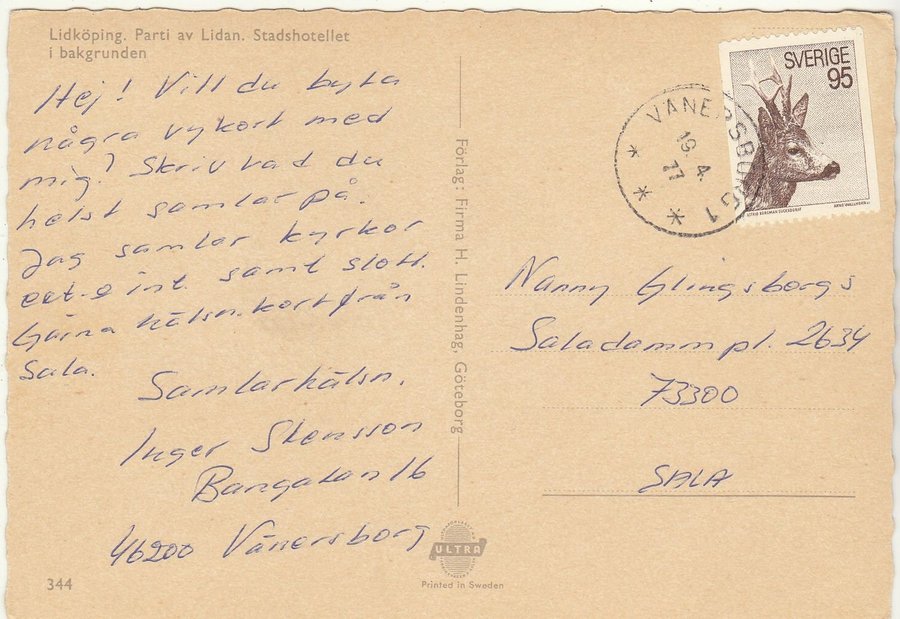 Lidköping. Parti av Lidan. Stadshotellet
i bakgrunden
Hej! Vill du byta
några vykort med
mig? Skriv vad du
helst samlar på.
Jag samlar kyrkor
ext. o int. samt slott.
Gärna hälsn. kort från
Sala.
Samlarhälsn.
Inger Stensson
Bangatan 16
46200 Vänersborg
344
Förlag: Firma H. Lindenhag, Göteborg
ULTRA
Printed in Sweden
SVERIGE
95
VÄNERSBORG 1
19. 4.
77
Nanny Glingsborgs
Saladammpl. 2634
73300
SALA